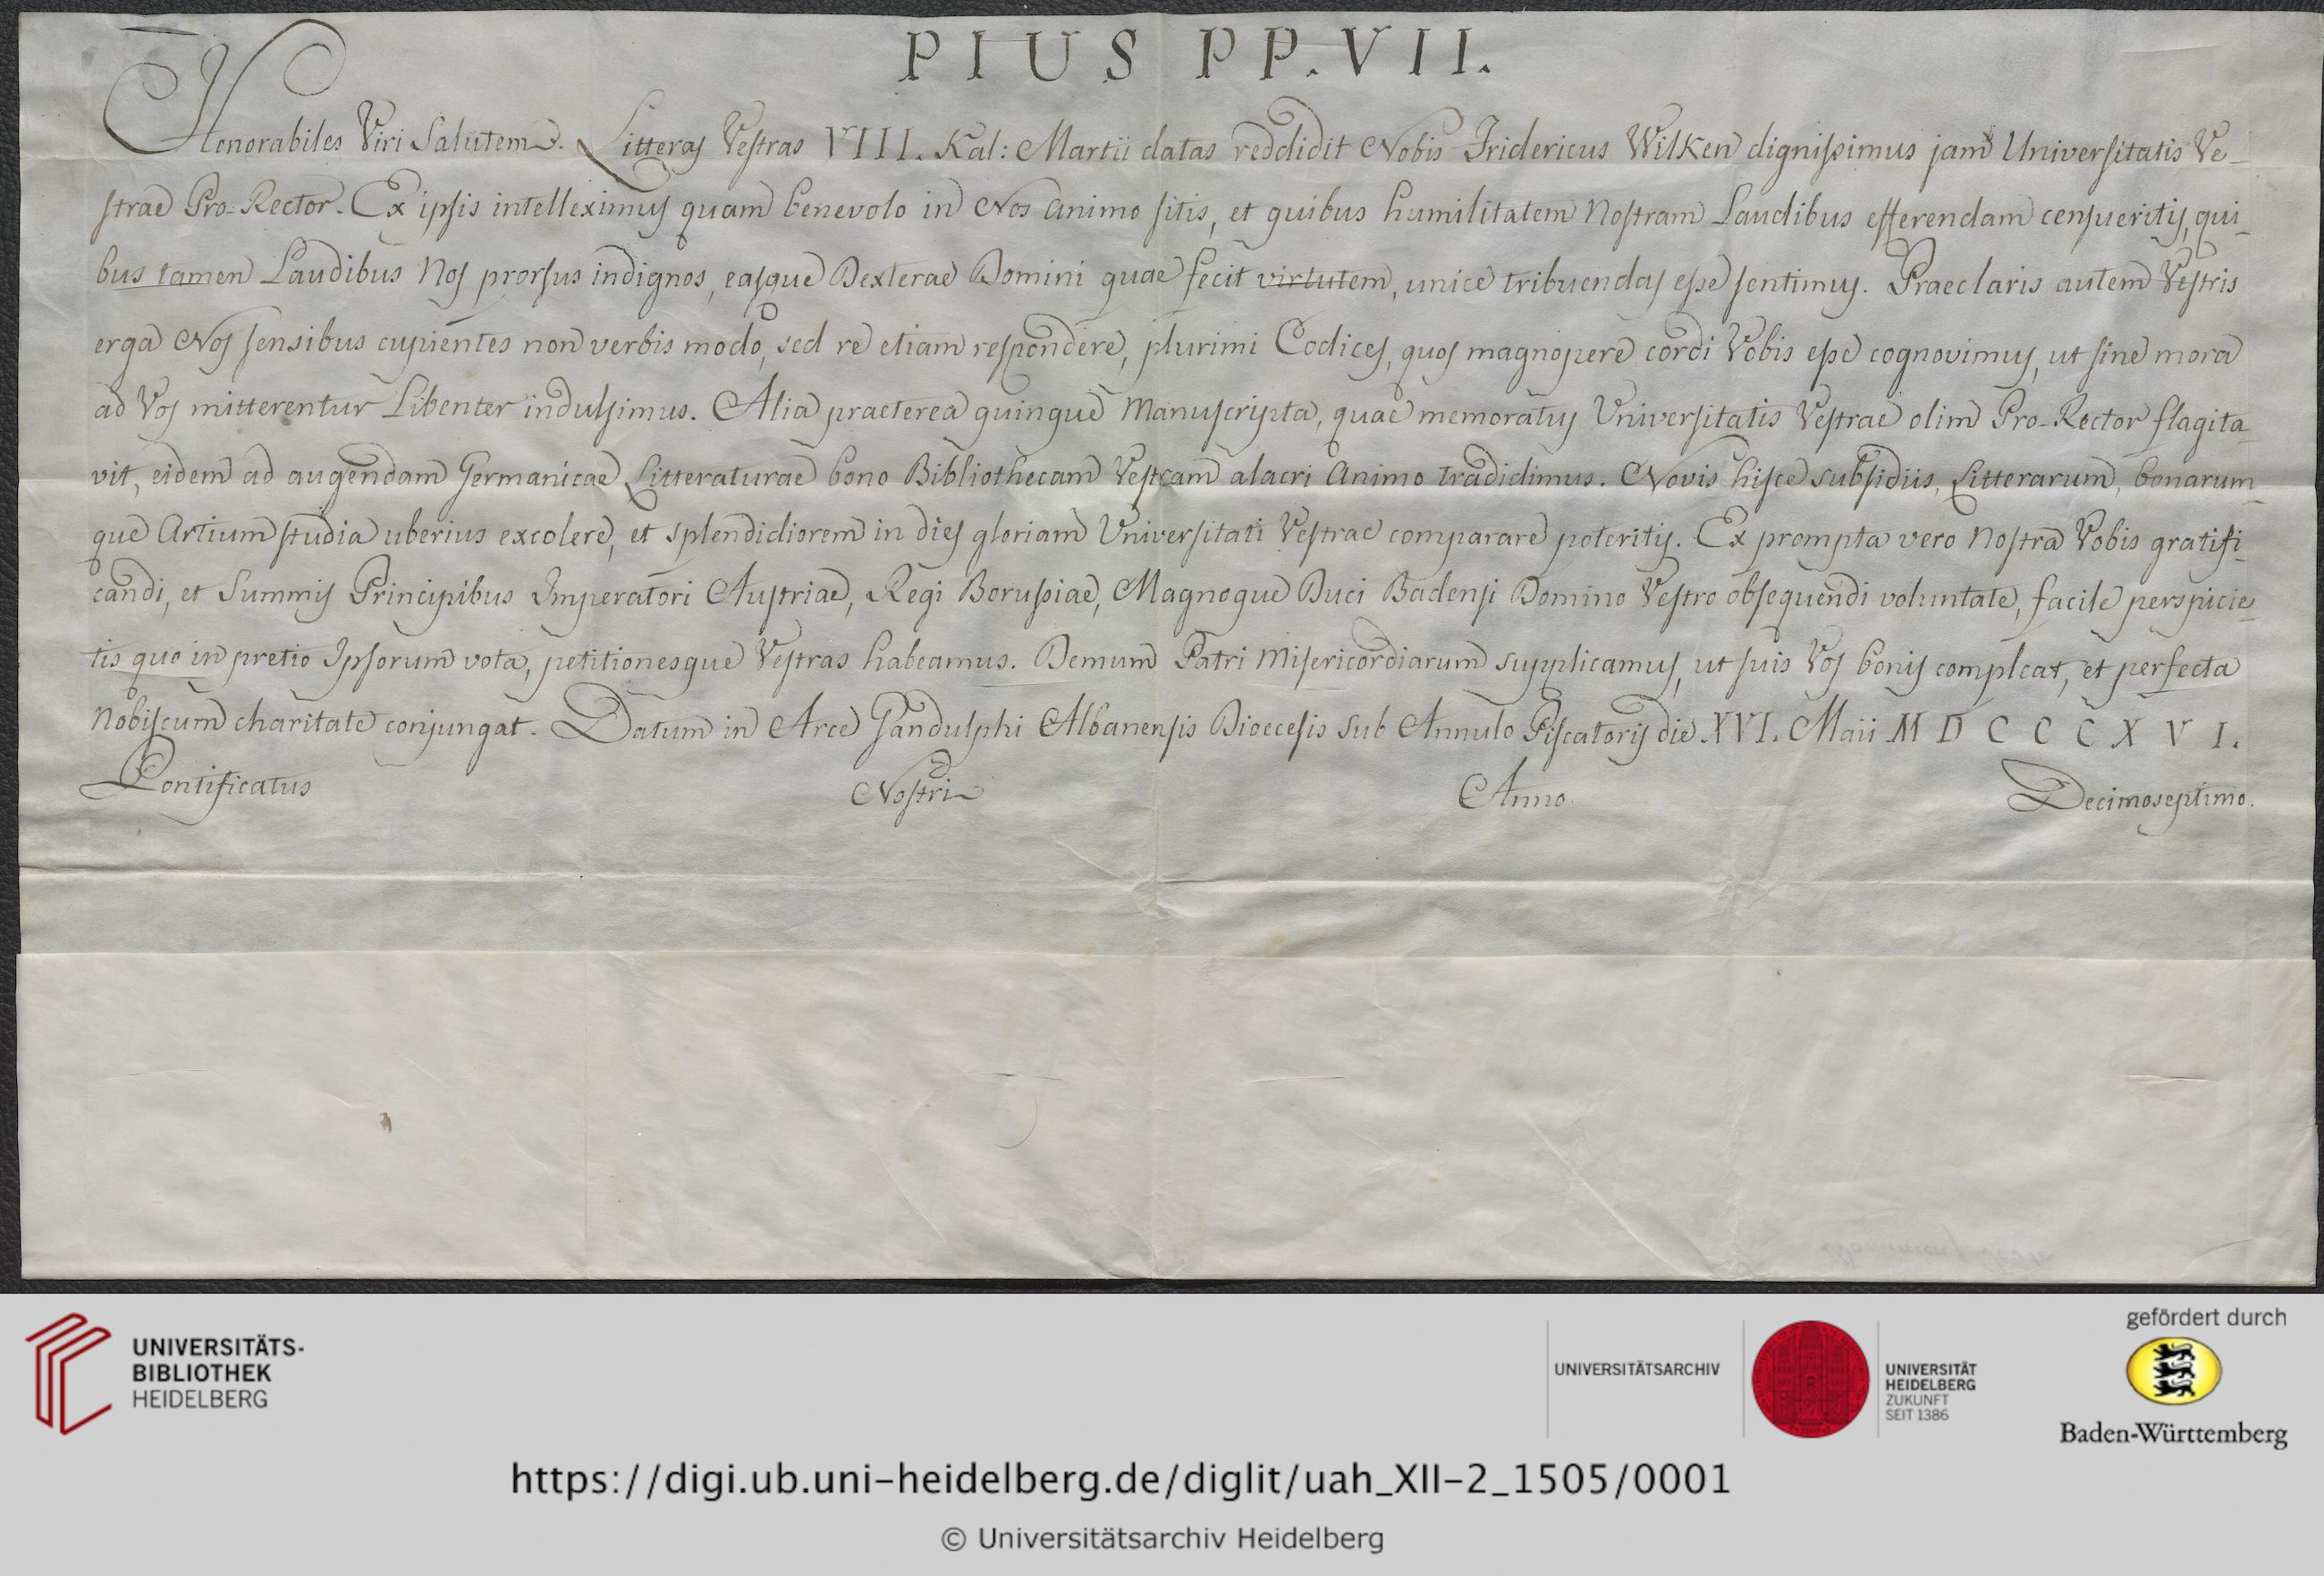 PIUS PP. VII.
Honorabiles Viri Salutem. Litteras Vestras VIII. Kal: Martii datas reddidit Nobis Fridericus Wilken dignissimus jam Universitatis Ve-
strae Pro-Rector. Ex ipsis intelleximus quam benevolo in Nos animo sitis, et quibus humilitatem Nostram Laudibus efferendam censueritis, qui-
bus tamen Laudibus Nos prorsus indignos, easque Dexterae Domini quae fecit virtutem, unice tribuendas esse sentimus. Praeclaris autem Vestris
erga Nos sensibus cupientes non verbis modo, sed re etiam respondere, plurimi Codices, quos magnopere cordi Vobis esse cognovimus, ut sine mora
ad Vos mitterentur Libenter indulsimus. Alia praeterea quinque Manuscripta, quae memoratus Universitatis Vestrae olim Pro-Rector flagita-
vit, eidem ad augendam Germanicae Litteraturae bono Bibliothecam Vestram alacri Animo tradidimus. Novis hisce subsidiis, Litterarum, bonarum-
que Artium studia uberius excolere, et splendidiorem in dies gloriam Universitati Vestrae comparare poteritis. Ex prompta vero Nostra Vobis gratifi-
candi, et Summis Principibus Imperatori Austriae, Regi Borussiae, Magnoque Duci Badensi Domino Vestro obsequendi voluntate, facile perspicie-
tis quo in pretio Ipsorum vota, petitionesque Vestras habeamus. Demum Patri Misericordiarum supplicamus, ut suis Vos bonis compleat, et perfecta
Nobiscum charitate conjungat. Datum in Arce Gandulphi Albanensis Dioecesis sub Annulo Piscatoris die XVI. Maii MDCCCXVI.
Pontificatus Nostri Anno Decimoseptimo.
UNIVERSITÄTS-
BIBLIOTHEK
HEIDELBERG
UNIVERSITÄTSARCHIV
UNIVERSITÄT
HEIDELBERG
ZUKUNFT
SEIT 1386
gefördert durch
Baden-Württemberg
https://digi.ub.uni-heidelberg.de/diglit/uah_XII-2_1505/0001
© Universitätsarchiv Heidelberg